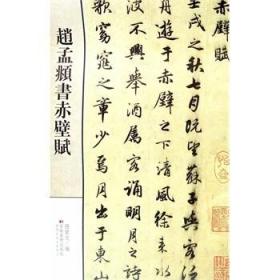 趙孟頫書赤壁賦
赤壁賦
壬戌之秋七月既望蘇子與客泛
舟游于赤壁之下清風徐来水
波不興舉酒屬客誦明月之詩
歌窈窕之章少焉月出于東山